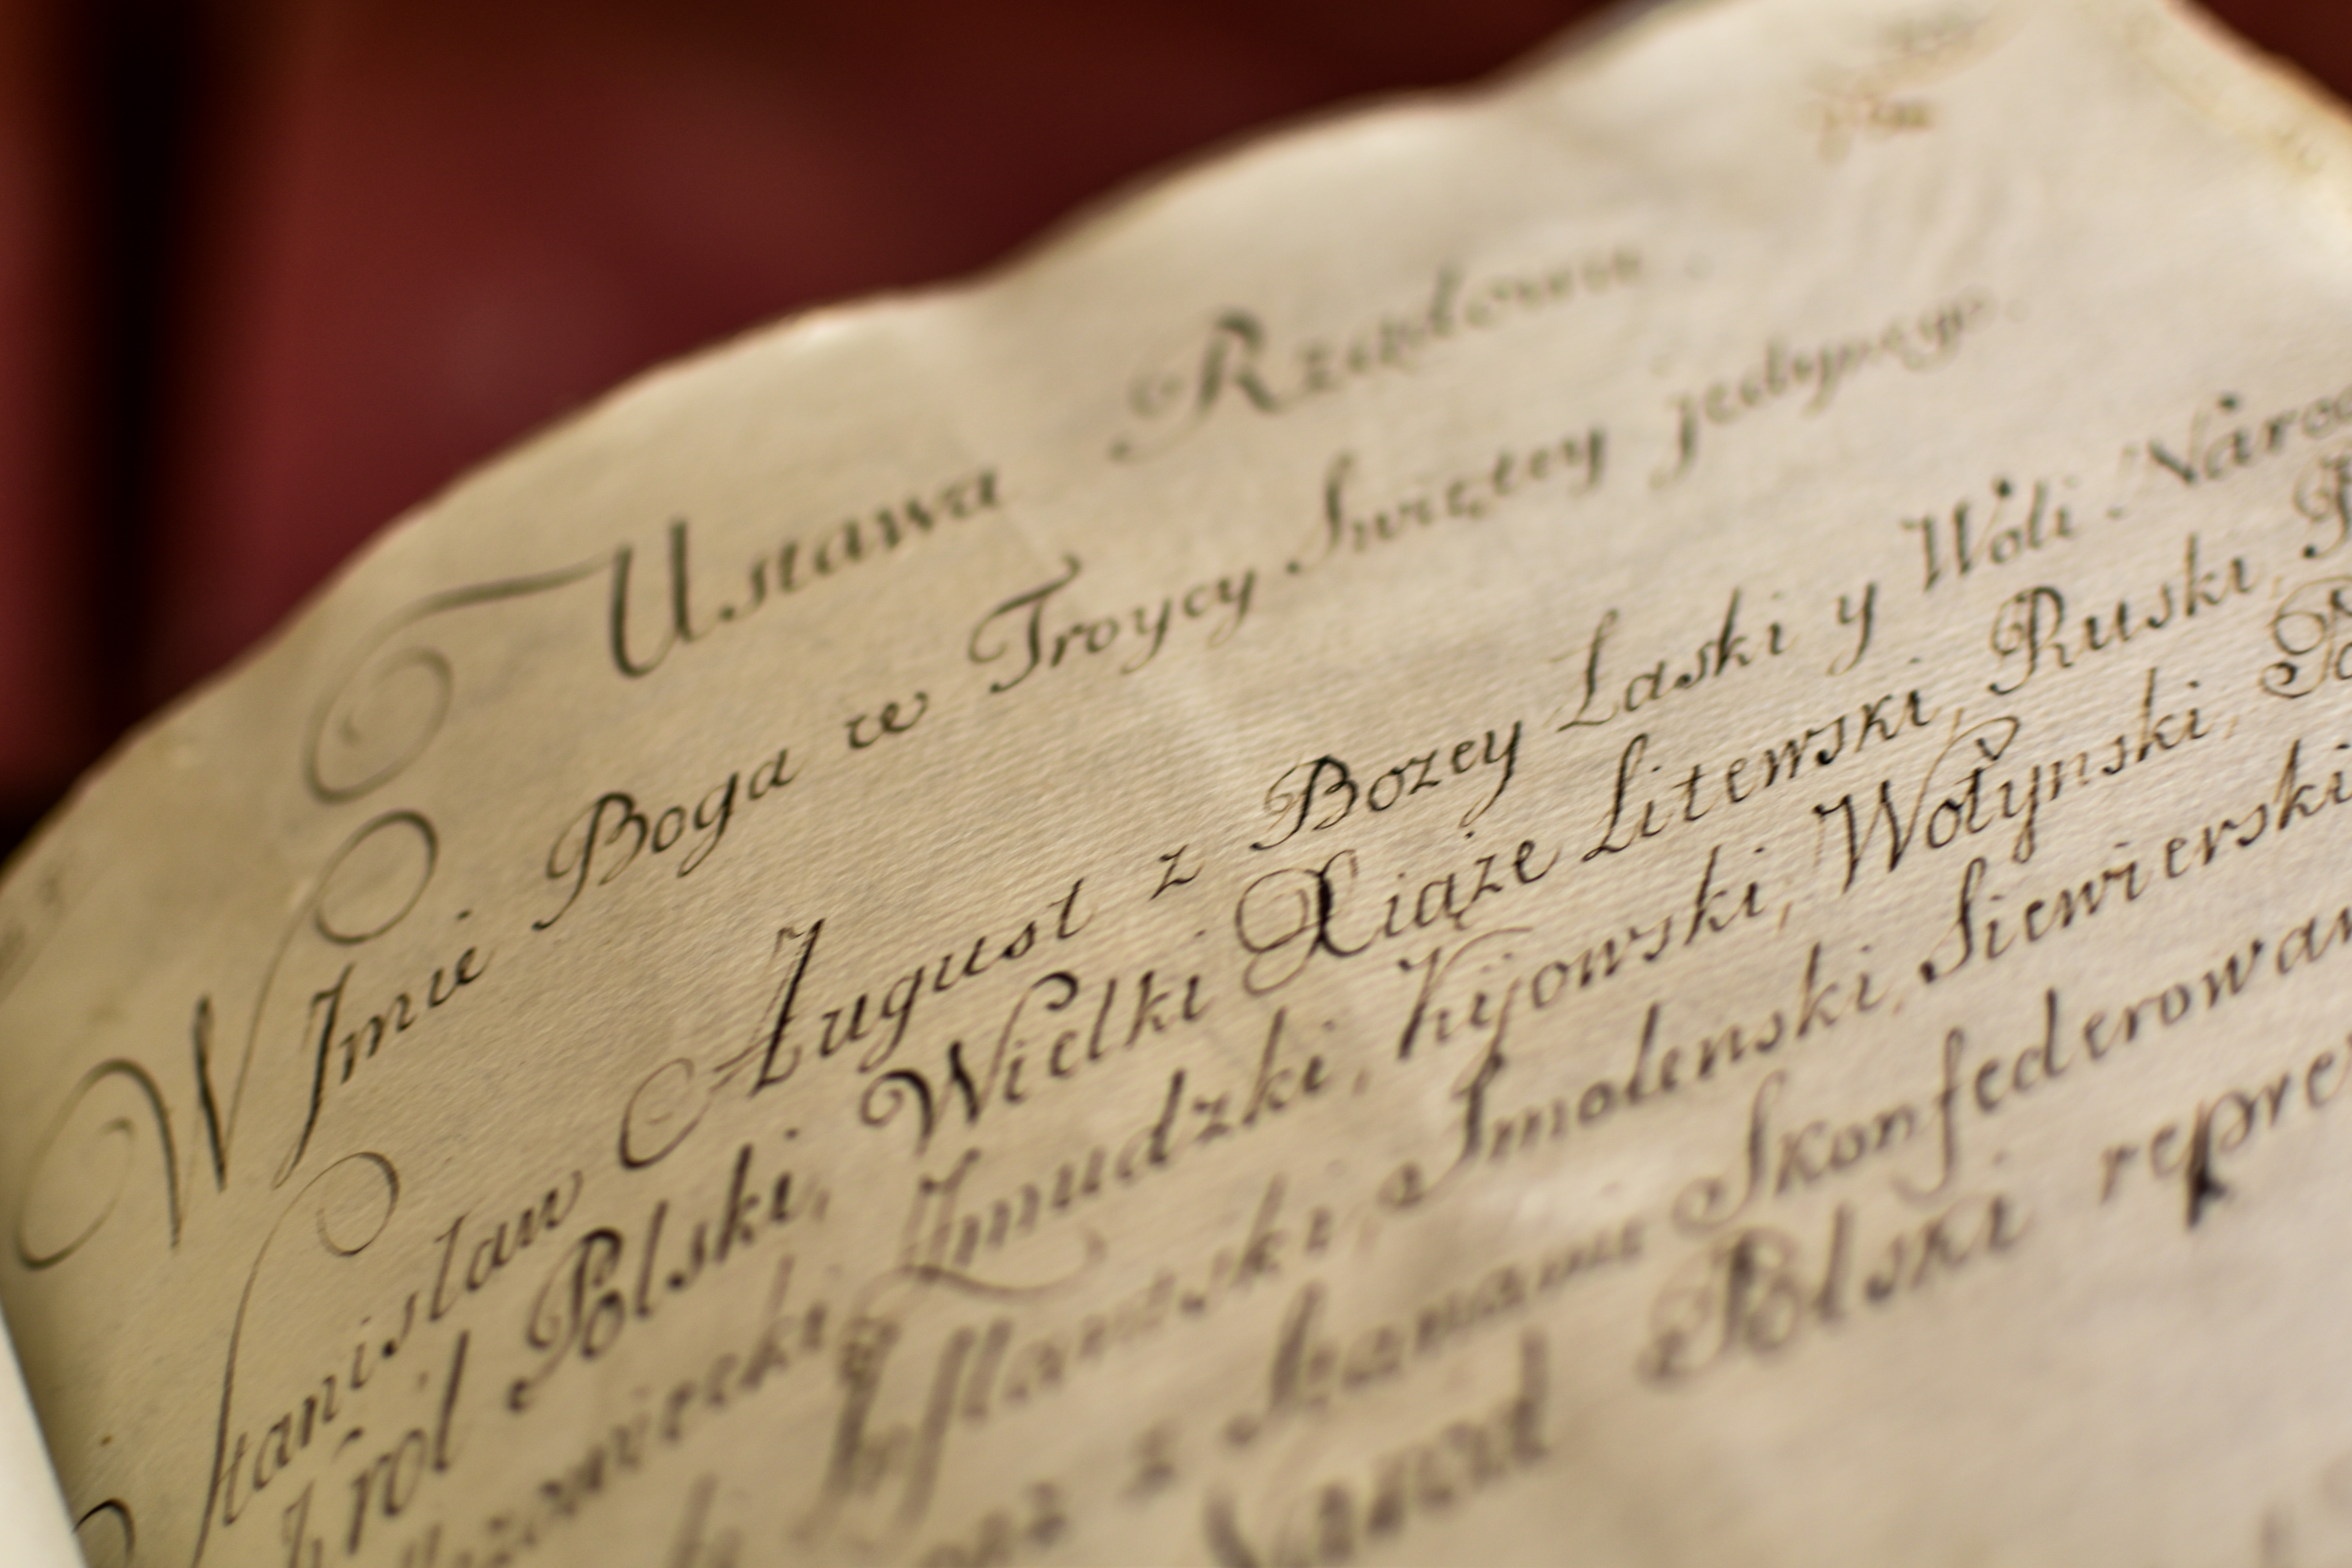 Ustawa Rządowa.
W Imie Boga w Troycy Swiętey jedynego.
Stanisław August z Bozey Laski y Woli Narod
Król Polski, Wielki Xiąże Litewski, Ruski,
Mazowiecki, Zmudzki, Kijowski, Wołynski,
Inflantski, Smolenski, Siewierski
z Stanami Skonfederowan
Narod Polski repre